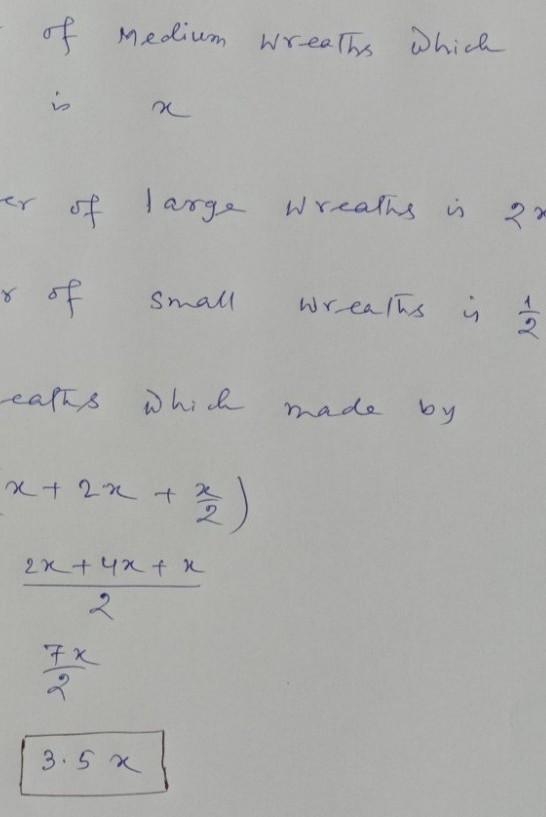 of Medium wreaths which
is x
er of large wreaths is 2x
r of small wreaths is 1/2
eaths which made by
x + 2x + x/2)
2x + 4x + x / 2
7x/2
3.5 x